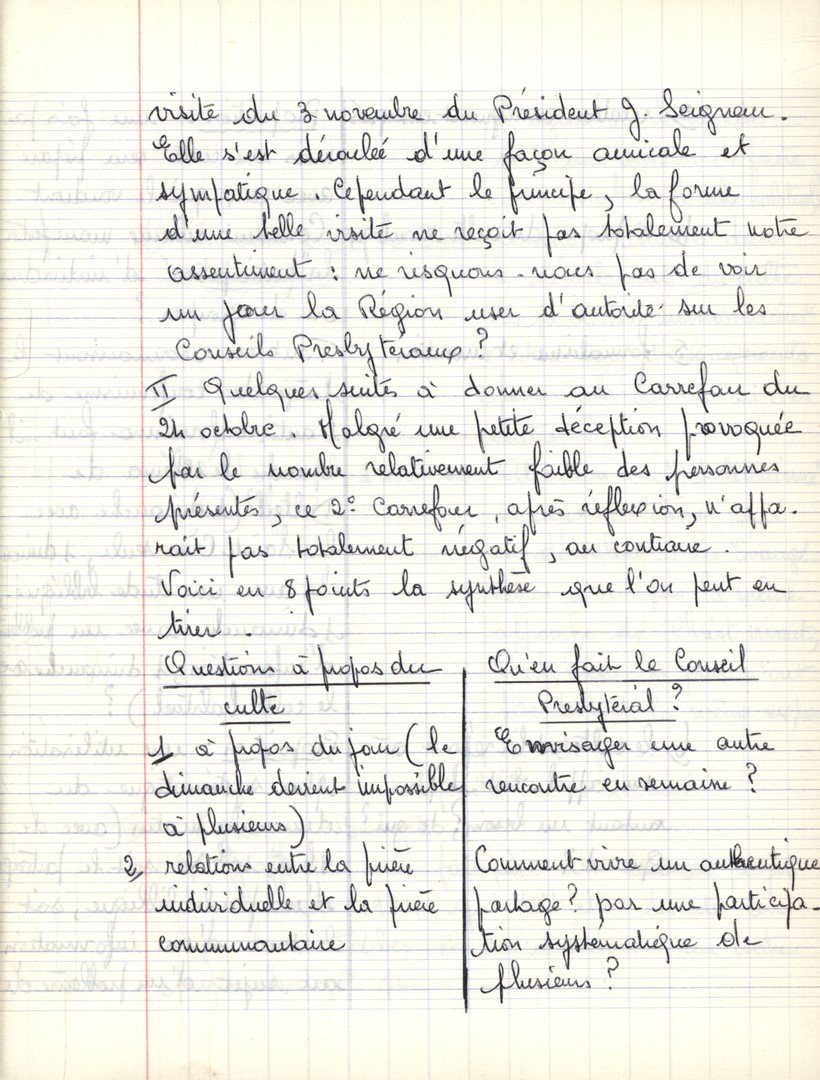 visite du 3 novembre du Président J. Seigneur.
Elle s'est déroulée d'une façon amicale et
sympatique. Cependant le principe, la forme
d'une telle visite ne reçoit pas totalement notre
assentiment : ne risquons-nous pas de voir
un jour la Région user d'autorité sur les
Conseils Presbytéraux ?
II Quelques suites à donner au Carrefour du
24 octobre. Malgré une petite déception provoquée
par le nombre relativement faible des personnes
présentes, ce 2° Carrefour, après réflexion, n'appa-
rait pas totalement négatif, au contraire.
Voici en 8 points la synthèse que l'on peut en
tirer.
Questions à propos du
culte
1 à propos du jour (le
dimanche devient impossible
à plusieurs)
2, relations entre la prière
individuelle et la prière
communautaire
Qu'en fait le Conseil
Presbytéral ?
Envisager une autre
rencontre en semaine ?
Comment vivre un authentique
partage ? par une participa-
tion systématique de
plusieurs ?